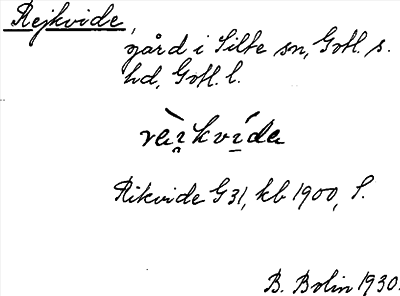 Rejkvide,
gård i Silte sn, Gotl. s.
hd, Gotl. l.
ràı̯kví̱da
Rikvide G 31, kb 1900, S.
B. Bolin 1930.